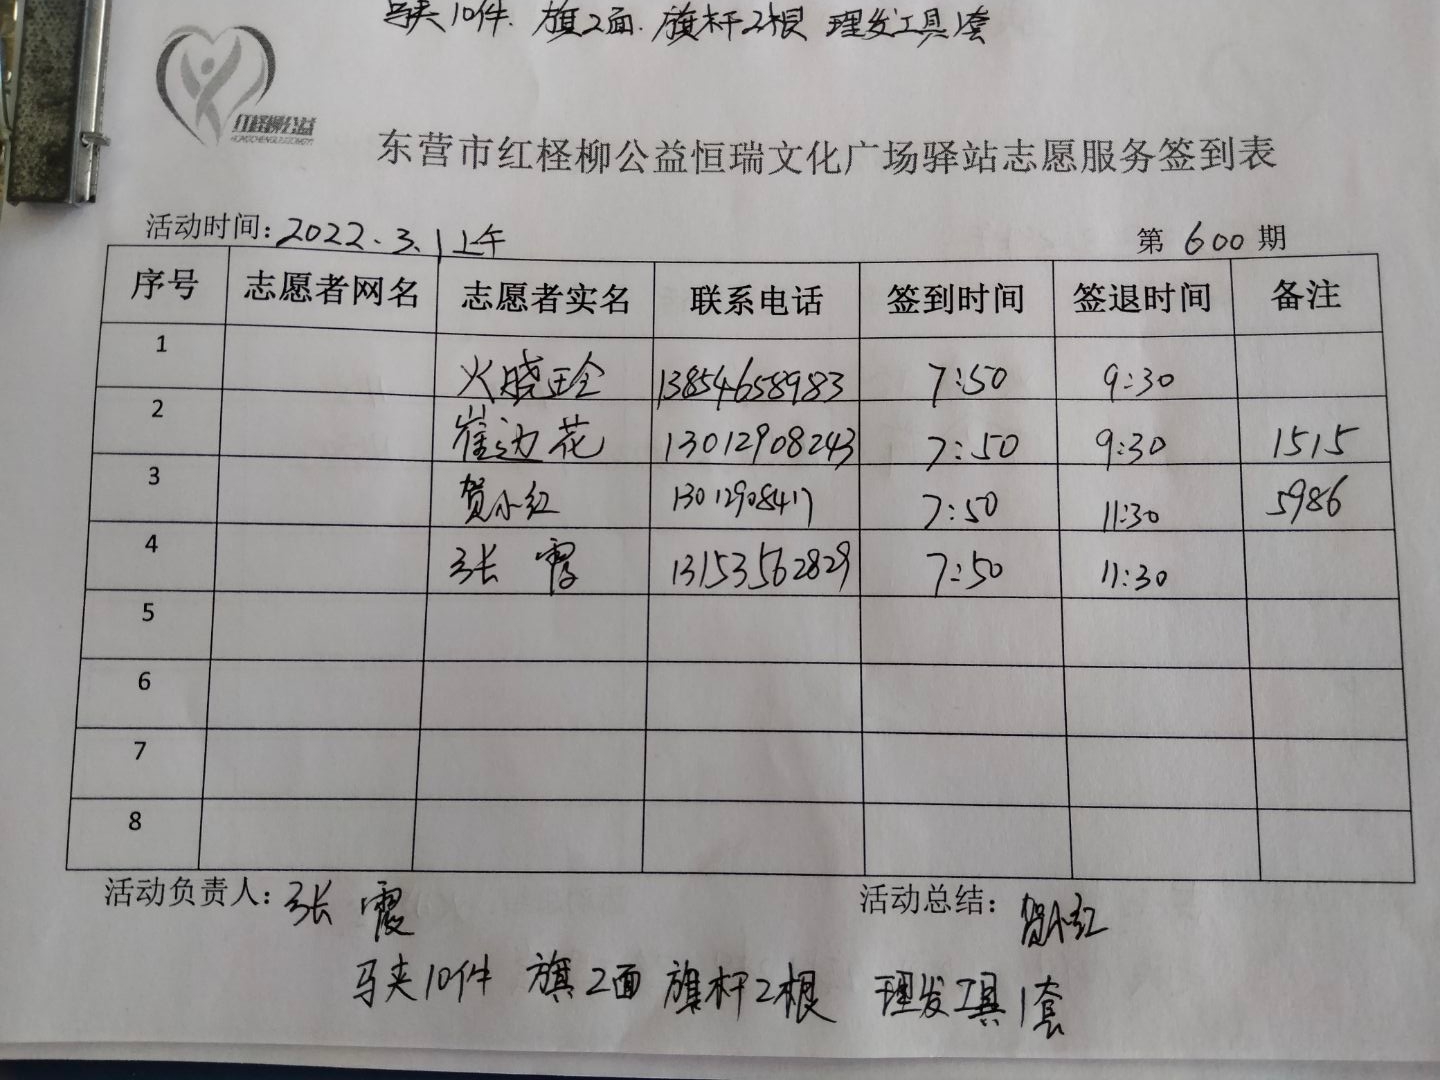 马夹10件. 旗2面. 旗杆2根 理发工具1套
红柽柳公益
东营市红柽柳公益恒瑞文化广场驿站志愿服务签到表
活动时间: 2022.3.1上午 第 600 期
序号 志愿者网名 志愿者实名 联系电话 签到时间 签退时间 备注
1 火晓玲 13854658983 7:50 9:30
2 崔边花 13012908243 7:50 9:30 1515
3 贺小红 13012908417 7:50 11:30 5986
4 张霞 13153562829 7:50 11:30
5
6
7
8
活动负责人: 张霞 活动总结: 贺小红
马夹10件 旗2面 旗杆2根 理发工具1套